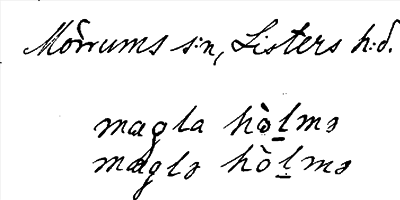 Mörrums s:n, Listers h:d.
magla hò̱ḻmə
maglə hò̱ḻmə